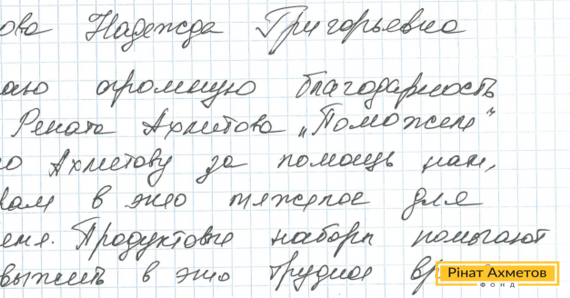 ова Надежда Григорьевна
аю огромную благодарность
Рената Ахметова „Поможем“
о Ахметову за помощь нам,
вам в это тяжелое для
еня. Продуктовые наборы помогают
выжить в это трудное вр
Рінат Ахметов
ФОНД